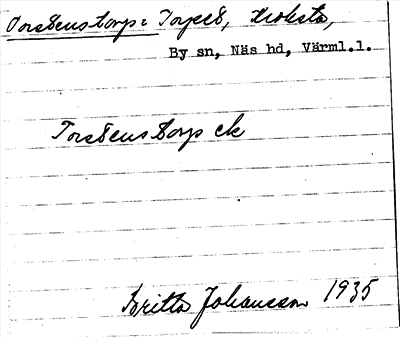 Torstenstorp: Torpet, Kroksta,
By sn, Näs hd, Värml.l.
Torstenstorp ek
Britta Johansson 1935